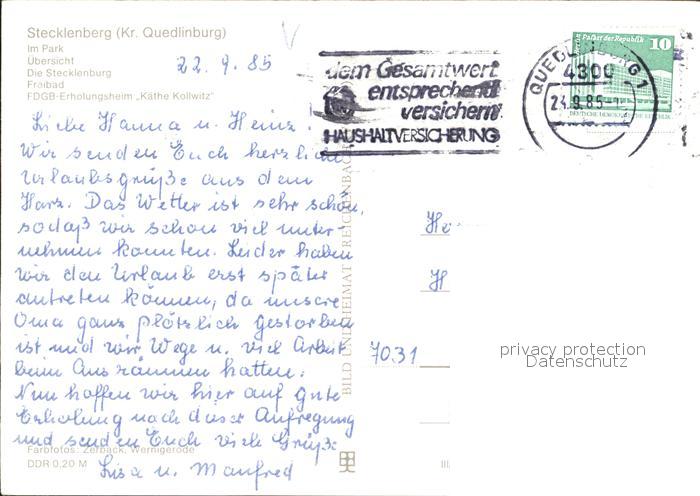 Stecklenberg (Kr. Quedlinburg)
Im Park
Übersicht
Die Stecklenburg
Freibad
FDGB-Erholungsheim „Käthe Kollwitz"
22.9.85
dem Gesamtwert
entsprechend
versichern
HAUSHALTVERSICHERUNG
QUEDLINBURG 1
4300
24.9.85-1
Berlin, Palast der Republik
10
DEUTSCHE DEMOKRATISCHE REPUBLIK
Liebe Hanna u. Heinz.
Wir senden Euch herzliche
Urlaubsgrüße aus dem
Harz. Das Wetter ist sehr schön,
sodaß wir schon viel unter-
nehmen konnten. Leider haben
wir den Urlaub erst später
antreten können, da unsere
Oma ganz plötzlich gestorben
ist und wir Wege u. viel Arbeit
beim Ausräumen hatten.
Nun hoffen wir hier auf gute
Erholung nach dieser Aufregung
und senden Euch viele Grüße
Lisa u. Manfred
He
H
7031
BILD UND HEIMAT REICHENBACH
privacy protection
Datenschutz
Farbfotos: Zerback, Wernigerode
DDR 0,20 M
III